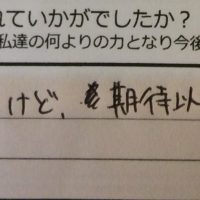 れていかがでしたか？
私達の何よりの力となり今後
けど、期待以